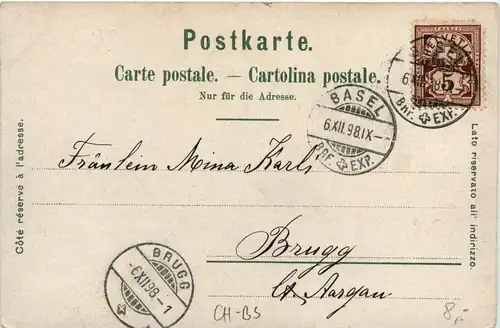 Postkarte.
Carte postale. — Cartolina postale.
Nur für die Adresse.
HELVETIA
5
BASEL
6.XII.98.IX–
Bhf. EXP.
Bhf. EXP.
Fräulein Mina Karli
Brugg
Ct. Aargau
BRUGG
-6.XII.98-1
Côté réservé à l'adresse.
Lato riservato all' indirizzo.
CH-BS
8,-